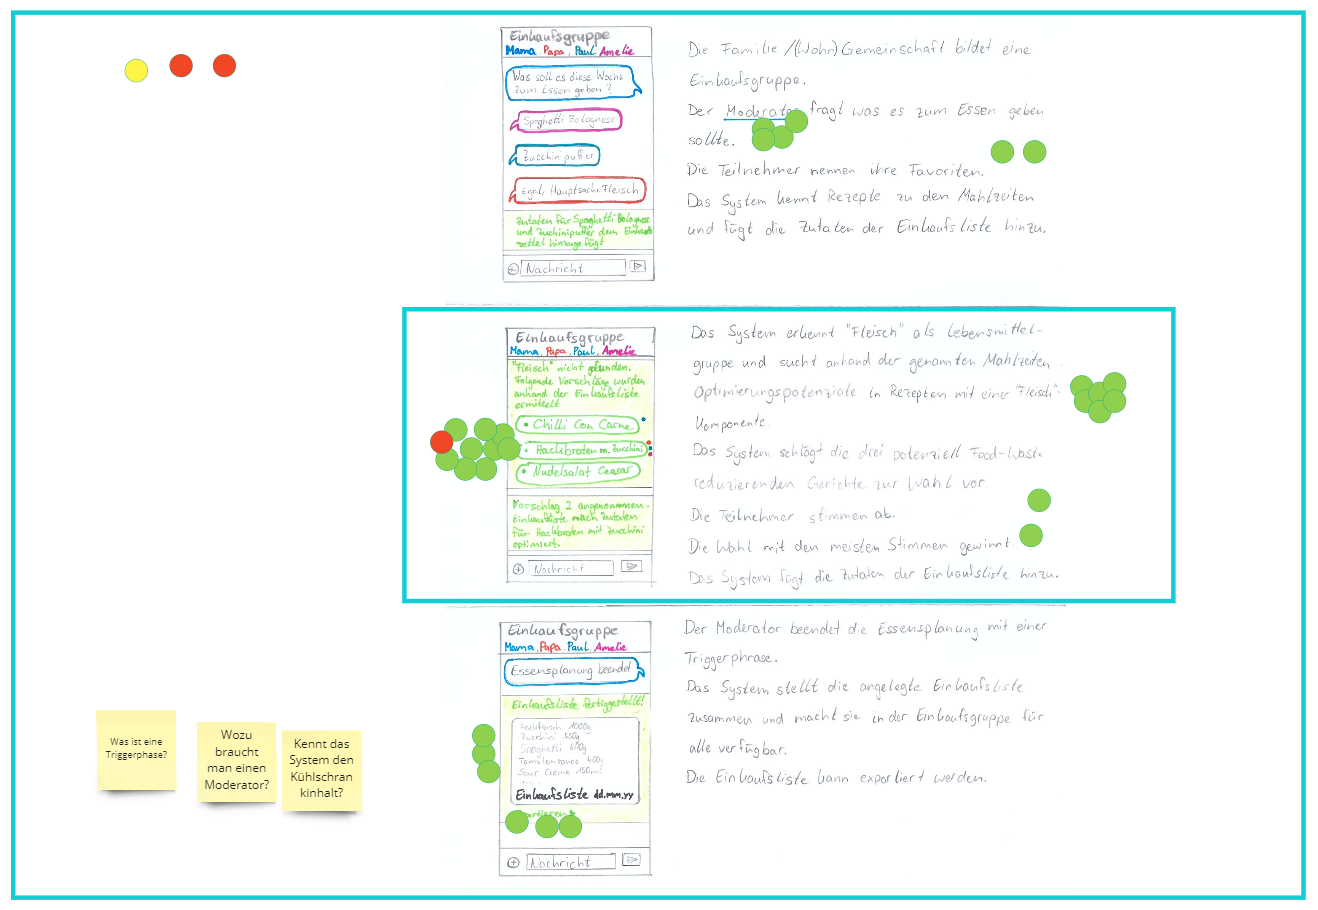 Einkaufsgruppe
Mama, Papa, Paul, Amelie
Was soll es diese Woche
zum Essen geben?
Spaghetti Bolognese
Zucchinipuffer
Egal, Hauptsache Fleisch
Zutaten für Spaghetti Bolognese
und Zuchinipuffer dem Einkaufs
zettel hinzugefügt
Nachricht
Die Familie /(Wohn)Gemeinschaft bildet eine
Einkaufsgruppe.
Der Moderator fragt was es zum Essen geben
sollte.
Die Teilnehmer nennen ihre Favoriten.
Das System kennt Rezepte zu den Mahlzeiten
und fügt die Zutaten der Einkaufsliste hinzu.
Einkaufsgruppe
Mama, Papa, Paul, Amelie
"Fleisch" nicht gefunden.
Folgende Vorschläge wurden
anhand der Einkaufsliste
ermittelt
• Chilli Con Carne
• Hackbraten m. Zucchini
• Nudelsalat Ceasar
Vorschlag 2 angenommen.
Einkaufsliste nach Zutaten
für Hackbraten mit Zucchini
optimiert.
Nachricht
Das System erkennt "Fleisch" als Lebensmittel-
gruppe und sucht anhand der genannten Mahlzeiten
Optimierungspotenziale in Rezepten mit einer "Fleisch"-
Komponente.
Das System schlägt die drei potenziell Food-Waste
reduzierenden Gerichte zur Wahl vor
Die Teilnehmer stimmen ab.
Die Wahl mit den meisten Stimmen gewinnt
Das System fügt die Zutaten der Einkaufsliste hinzu.
Einkaufsgruppe
Mama, Papa, Paul, Amelie
Essensplanung beendet
Einkaufsliste fertiggestellt!
Hackfleisch 1000g
Zucchini 350g
Spaghetti 600g
Tomatensauce 400g
Sour Creme 150ml
Einkaufsliste dd.mm.yy
Nachricht
Der Moderator beendet die Essensplanung mit einer
Triggerphrase.
Das System stellt die angelegte Einkaufsliste
zusammen und macht sie in der Einkaufsgruppe für
alle verfügbar.
Die Einkaufsliste kann exportiert werden.
Was ist eine
Triggerphase?
Wozu
braucht
man einen
Moderator?
Kennt das
System den
Kühlschran
kinhalt?